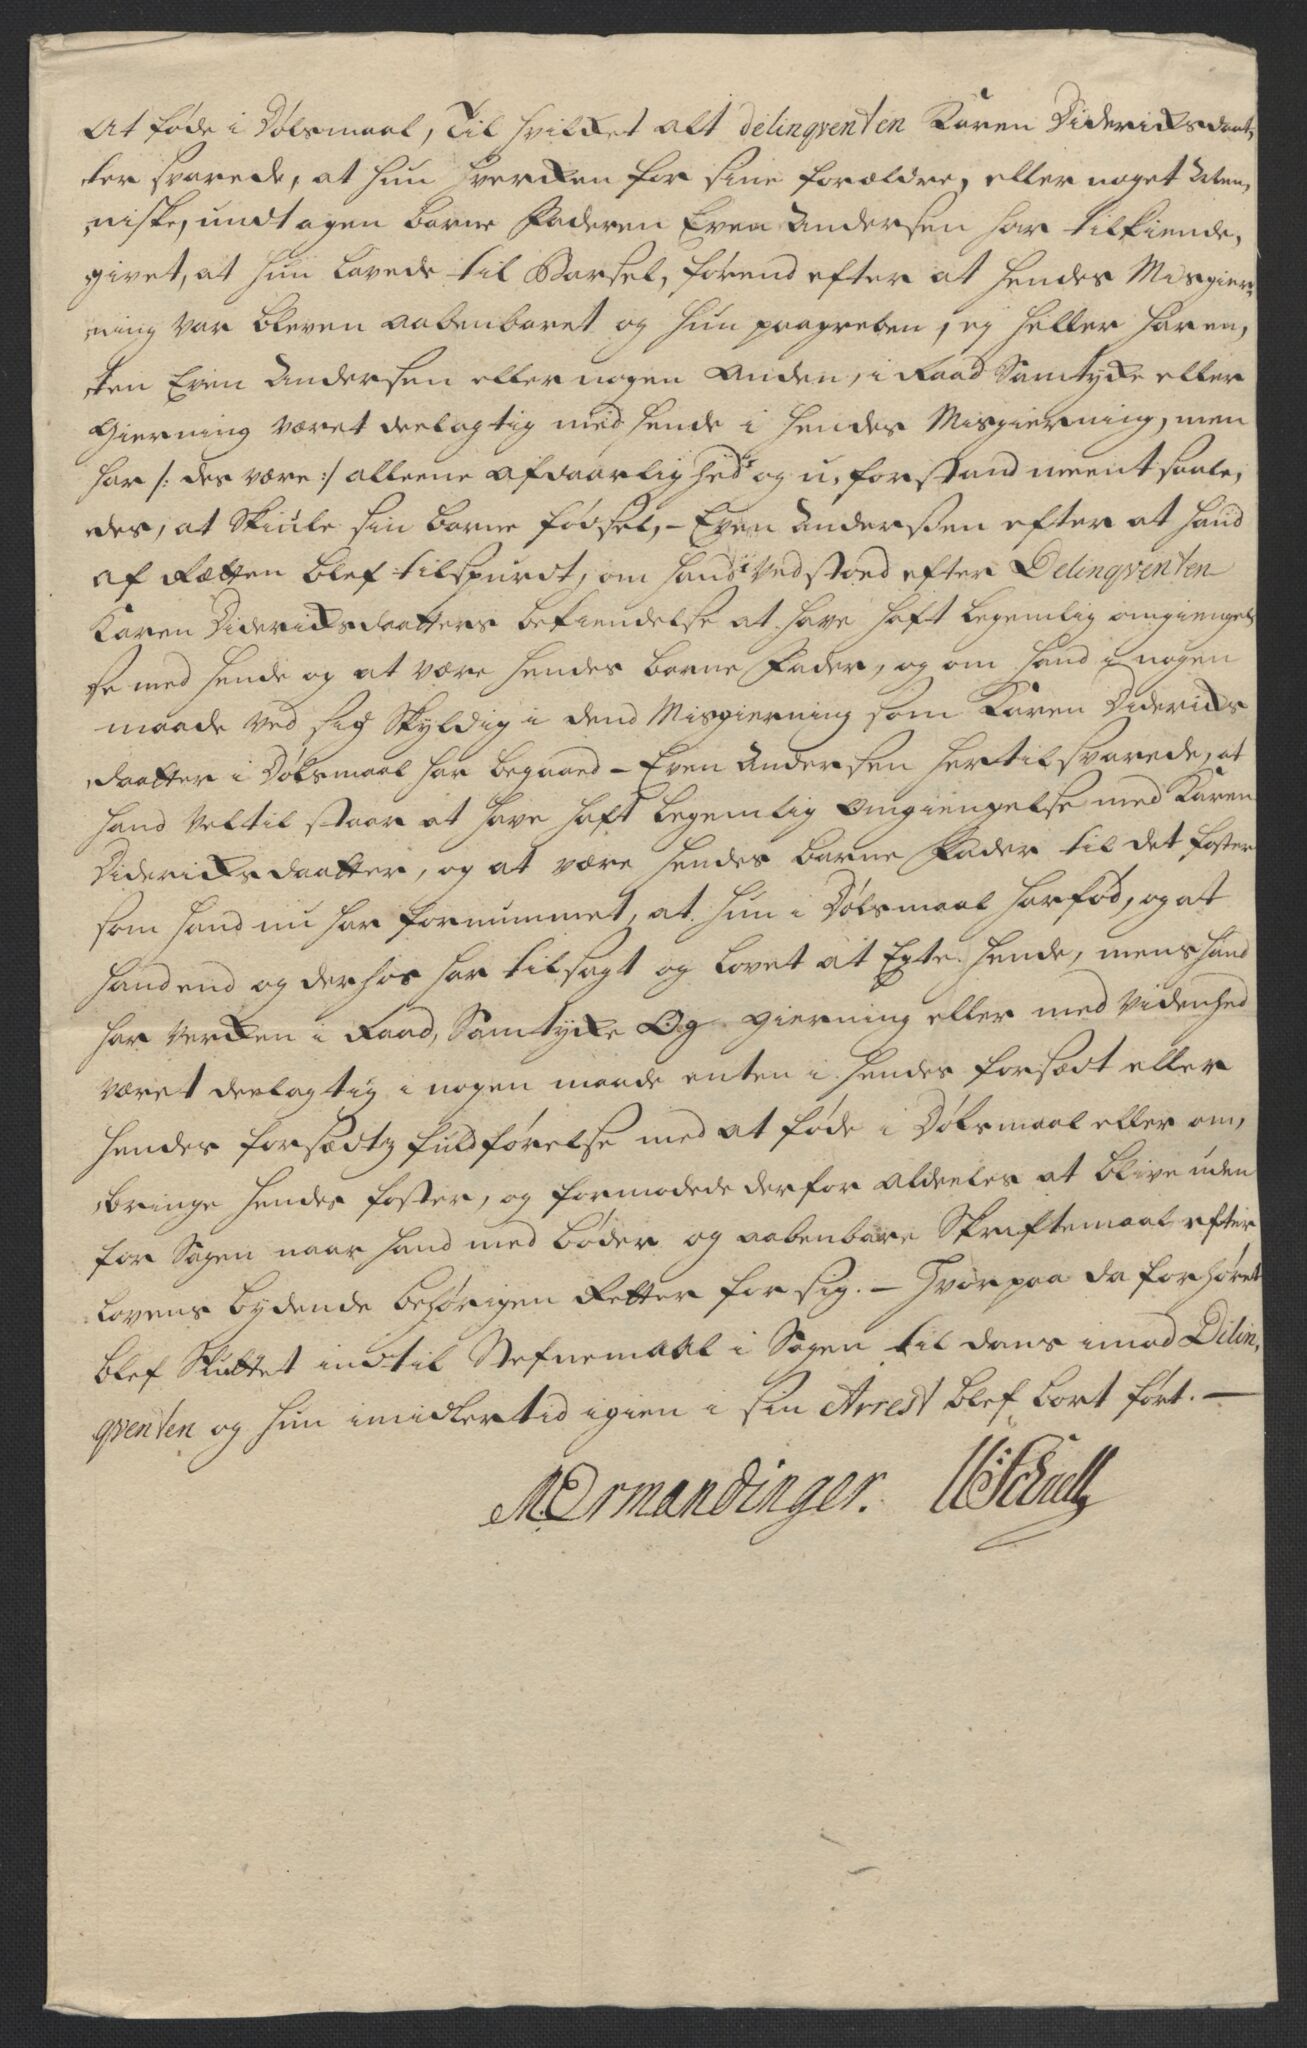 at føde i Dølsmaal, Til hvilket alt delinqventen Karen Diderichsdaat,
,ter svarede, at hun hverken for sine forældre, eller noget Men,
,niske, undtagen barne Faderen Even Andersen har tilkiende,
givet, at hun lavede til Barsel, førend efter at hendes Misgier,
,ning var bleven aabenbaret og hun paagreben, ey heller har en,
,ten Even Andersen eller nogen Anden, i Raad Samtyke eller
Gierning været deelagtig med hende i hendes Misgierning, men
har /: des være :/ alleene af daarlighed og u,forstand meent saale,
des, at Skiule sin barne fødsel, - Even Andersen efter at hand
af Retten blef tilspurdt, om hand vedstoed efter Delinqventen
Karen Diderichsdaatters bekiendelse at have haft legemlig omgiengel,
se med hende og at være hendes barne Fader, og om hand i nogen
maade ved sig Skyldig i dend Misgierning som Karen Diderichs
,daatter i Dølsmaal har begaaed - Even Andersen hertil svarede, at
hand vel tilstaar at have haft legemlig Omgiengelse med Karen
Diderichsdaatter, og at være hendes barne Fader til det foster
som hand nu har fornummet, at hun i Dølsmaal har fød, og at
hand end og derhos har tilsagt og lovet at Egte hende, mens hand
har verken i Raad, Samtyke Og gierning eller med videnhed
været deelagtig i nogen maade enten i hendes forsædt eller
hendes forsædtz fuldførelse med at føde i Dølsmaal eller om,
,bringe hendes foster, og formodede derfor aldeeles at blive uden
for Sagen naar hand med bøder og aabenbare Skriftemaal efter
lovens bydende behørigen Retter for sig. - Hvorpaa da forhøret
blef Sluttet indtil Stefnemaal i Sagen til doms imod Delin,
qventen og hun imidlertid igien i sin Arrest blef bort ført. -
M. Ormandinger.